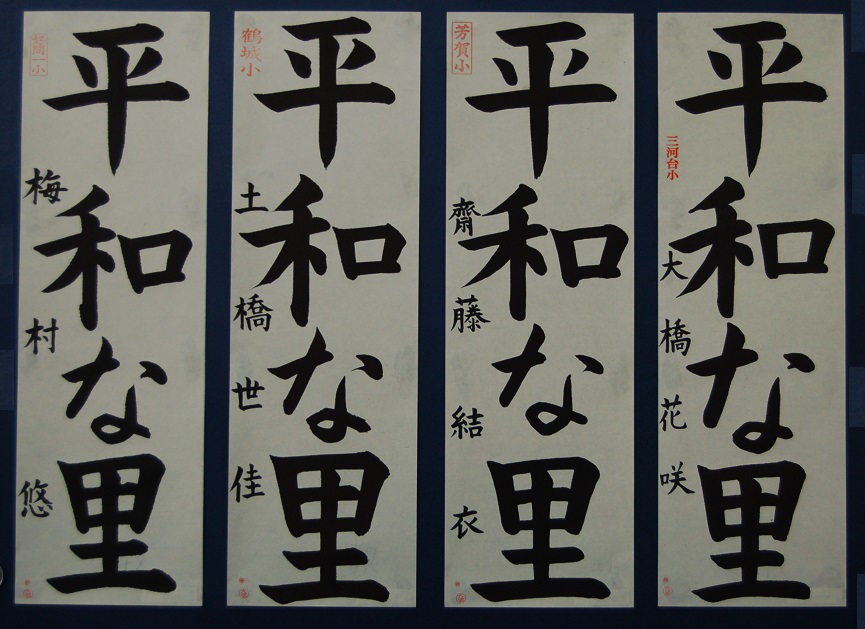 平和な里
三河台小
大橋花咲
平和な里
芳賀小
齋藤結衣
平和な里
鶴城小
土橋世佳
平和な里
梅村悠